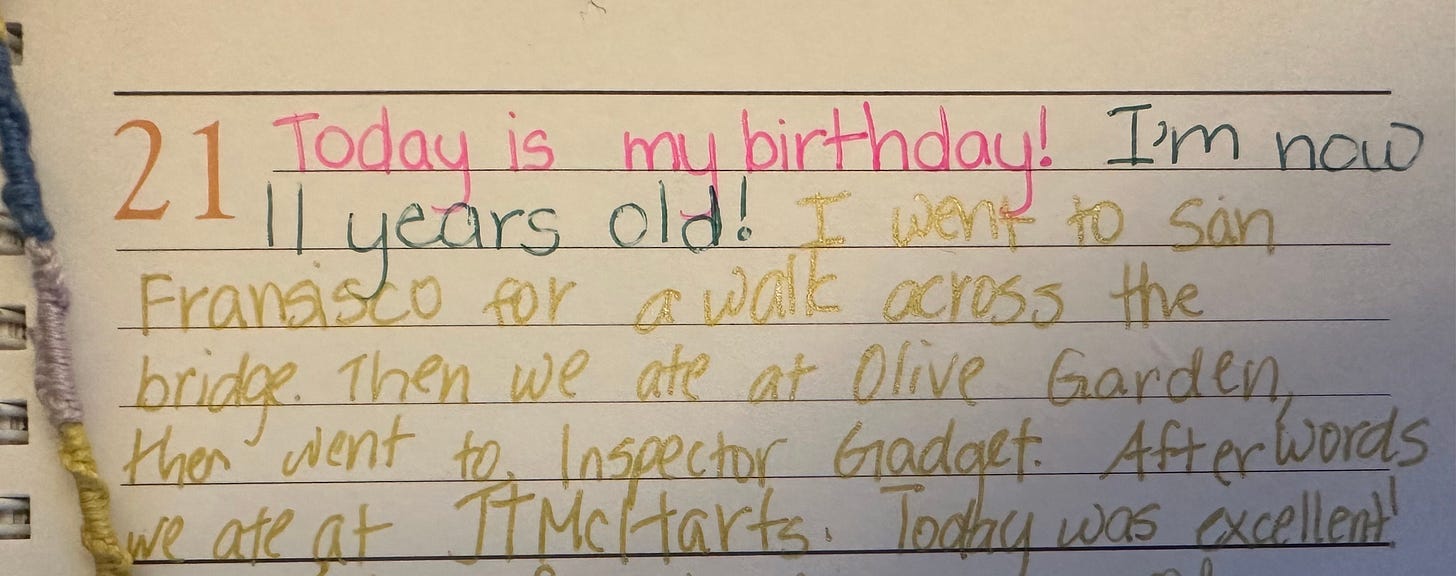 21 Today is my birthday! I'm now
11 years old! I went to San
Fransisco for a walk across the
bridge. Then we ate at Olive Garden,
then went to Inspector Gadget. Afterwords
we ate at JTMcHarts. Today was excellent!